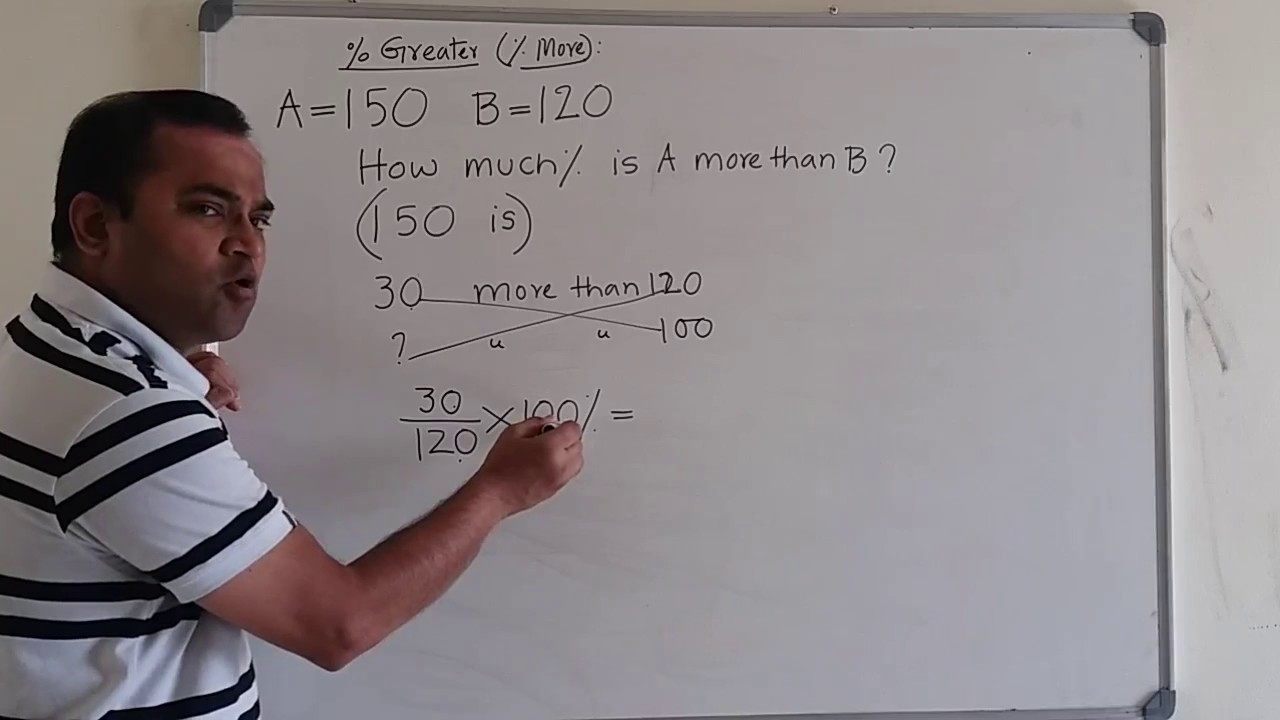 % Greater (% More):
A=150 B=120
How much% is A more than B?
(150 is)
30 more than 120
? " " 100
30/120 × 100% =